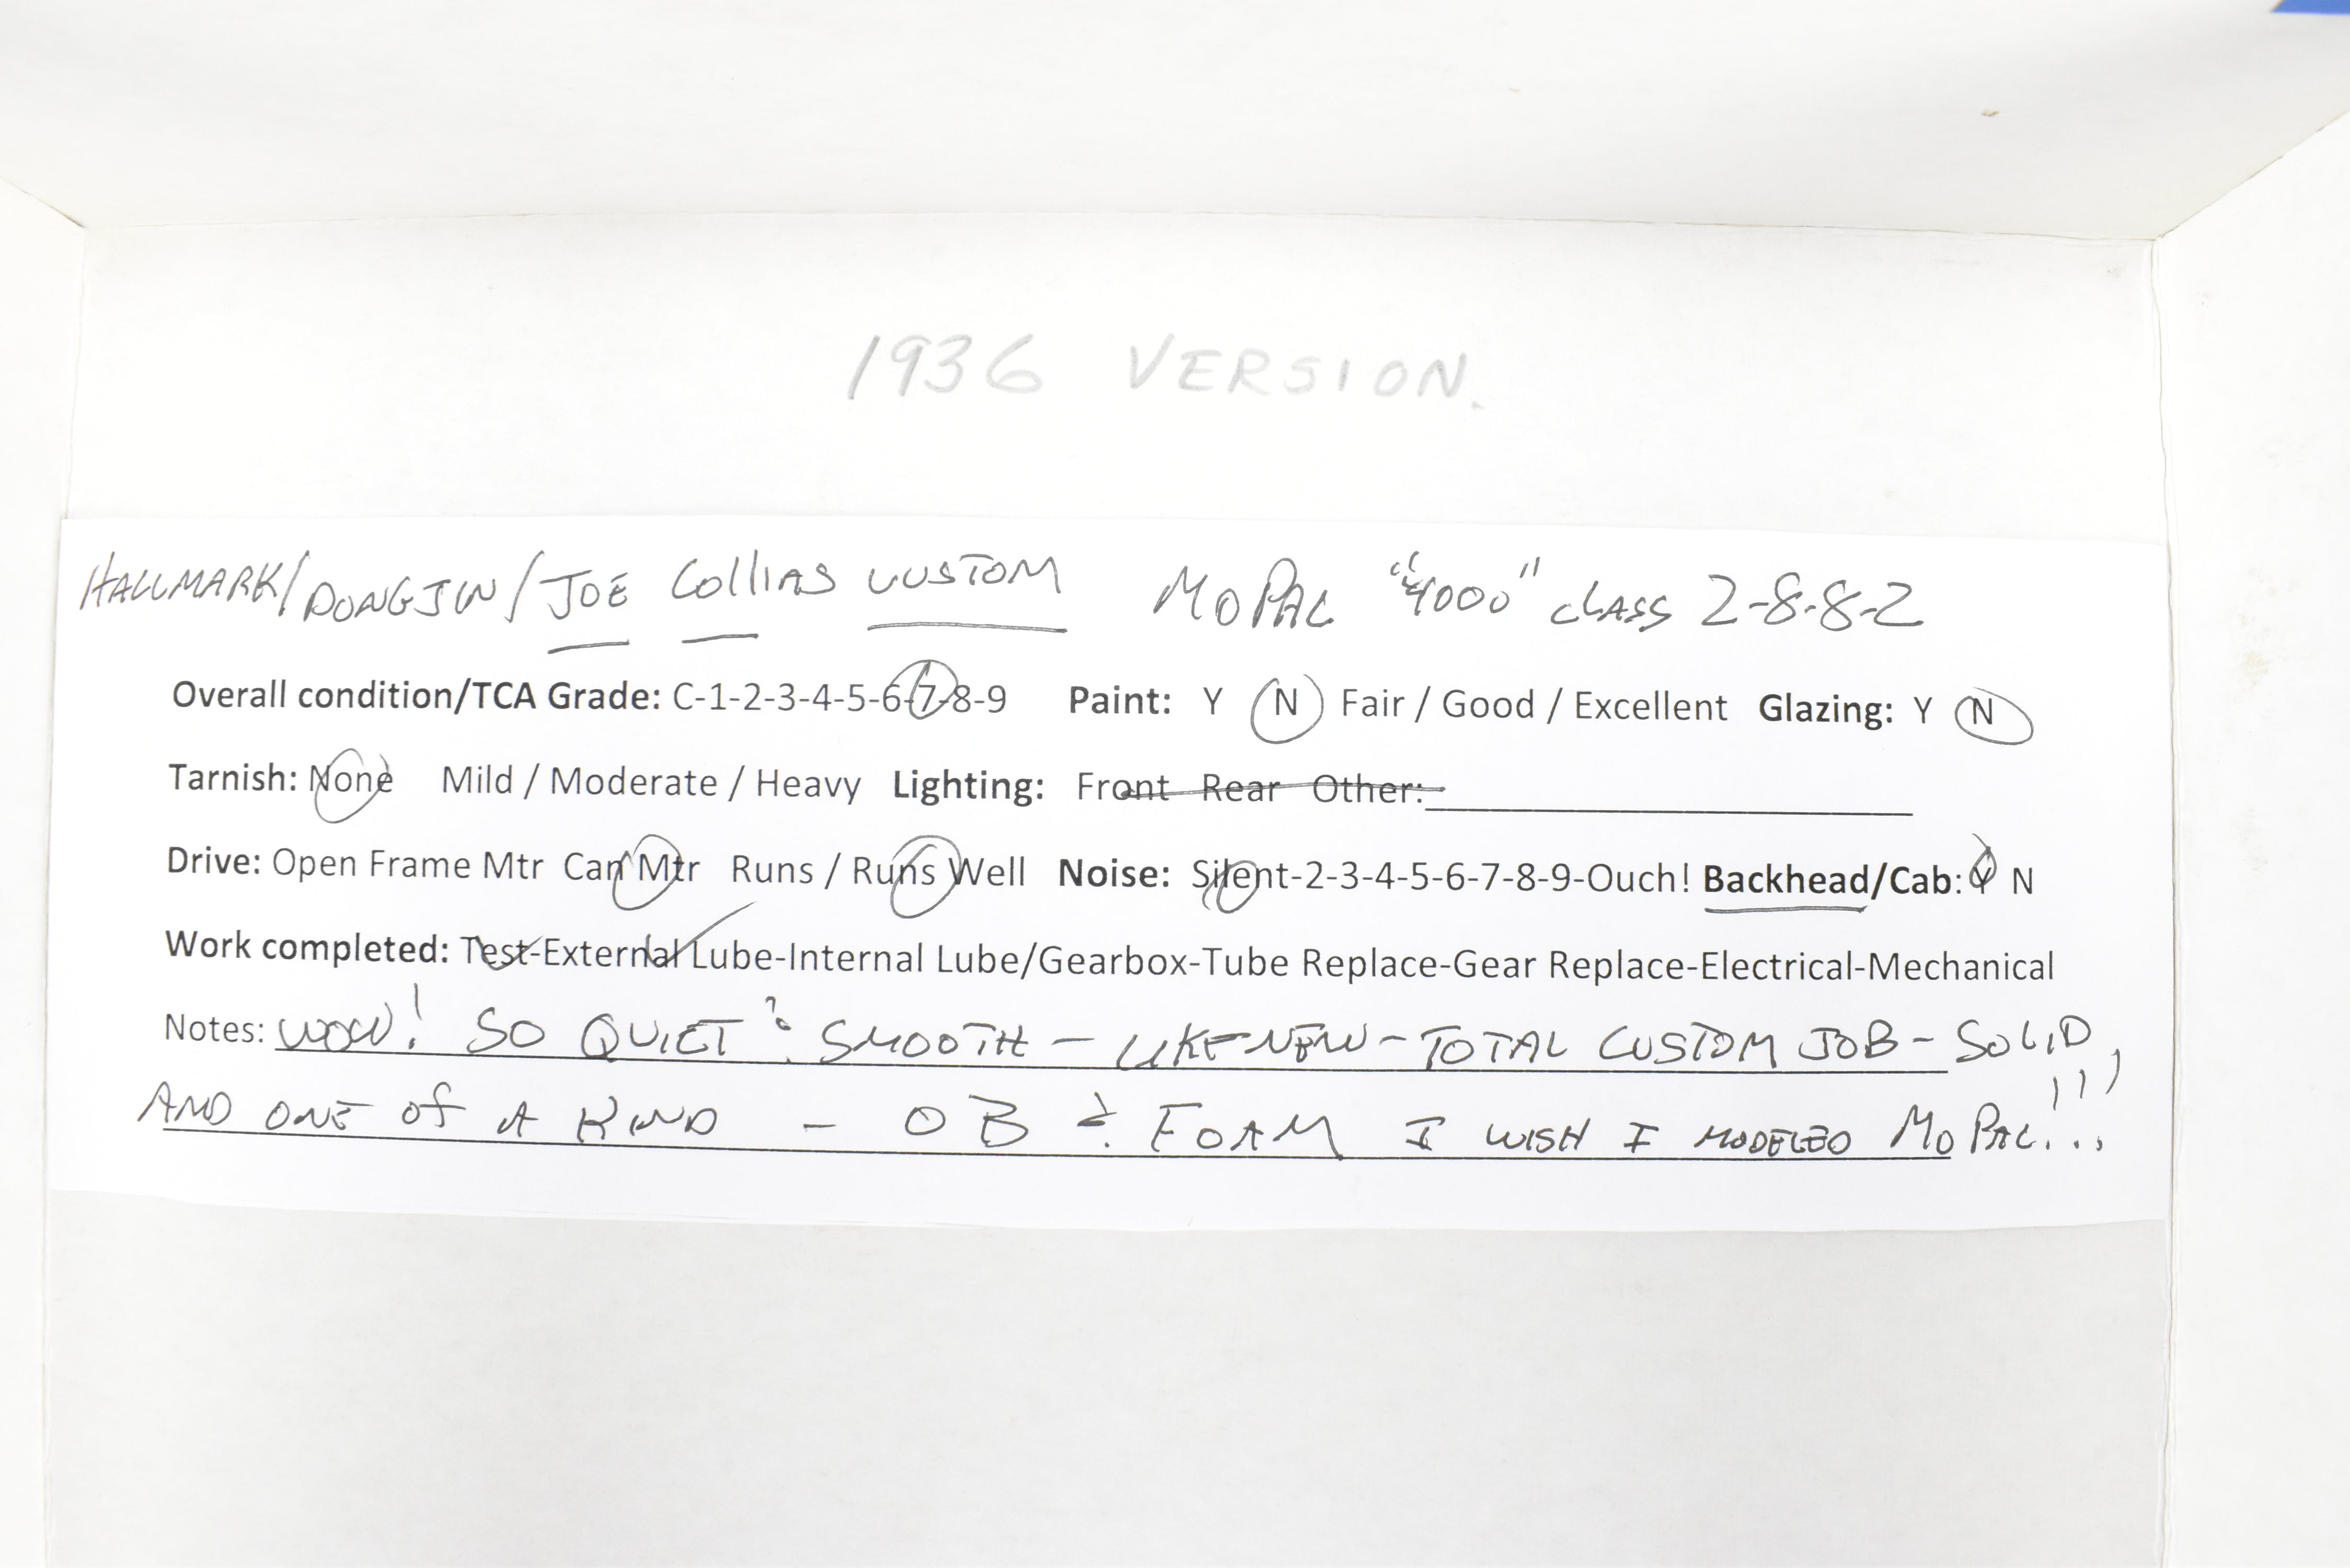 1936 VERSION.
HALLMARK/DONGJIN/JOE COLLIAS CUSTOM MOPAC "4000" CLASS 2-8-8-2
Overall condition/TCA Grade: C-1-2-3-4-5-6-7-8-9 Paint: Y N Fair / Good / Excellent Glazing: Y N
Tarnish: None Mild / Moderate / Heavy Lighting: Front Rear Other:
Drive: Open Frame Mtr Can Mtr Runs / Runs Well Noise: Silent-2-3-4-5-6-7-8-9-Ouch! Backhead/Cab: Y N
Work completed: Test-External Lube-Internal Lube/Gearbox-Tube Replace-Gear Replace-Electrical-Mechanical
Notes: WOW! SO QUIET & SMOOTH - LIKE NEW - TOTAL CUSTOM JOB - SOLID,
AND ONE OF A KIND - OB & FOAM I WISH I MODELED MOPAC!!!